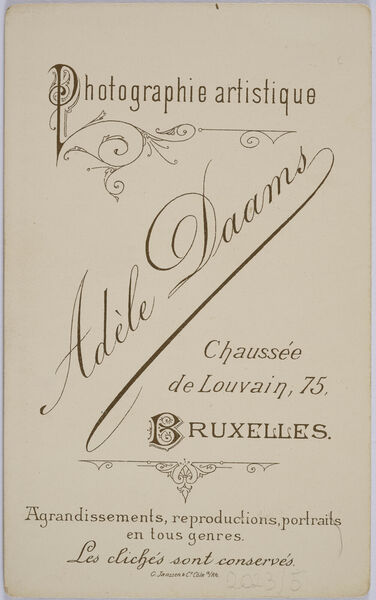 Photographie artistique
Adèle Daams
Chaussée
de Louvain, 75,
BRUXELLES.
Agrandissements, reproductions, portraits
en tous genres.
Les clichés sont conservés.
2023/5